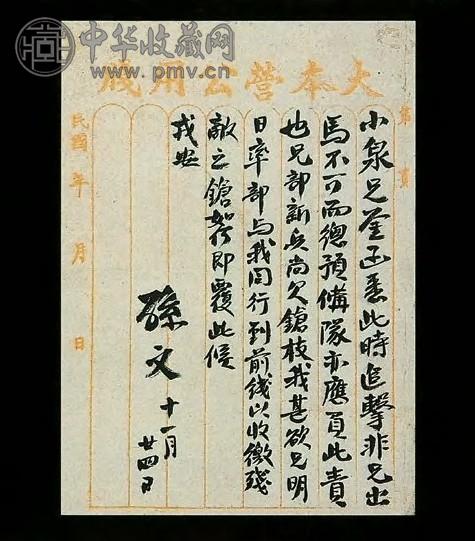 中华收藏网
www.pmv.cn
大本營公用牋
第 頁
小泉兄鉴函悉此時追擊非兄出
馬不可而總預備隊亦應負此責
也兄部新兵尚欠鎗枝我甚欲兄明
日率部与我同行到前线以收缴残
敵之鎗如何即覆此候
戎安
孫文 十一月
廿四日
民國 年 月 日